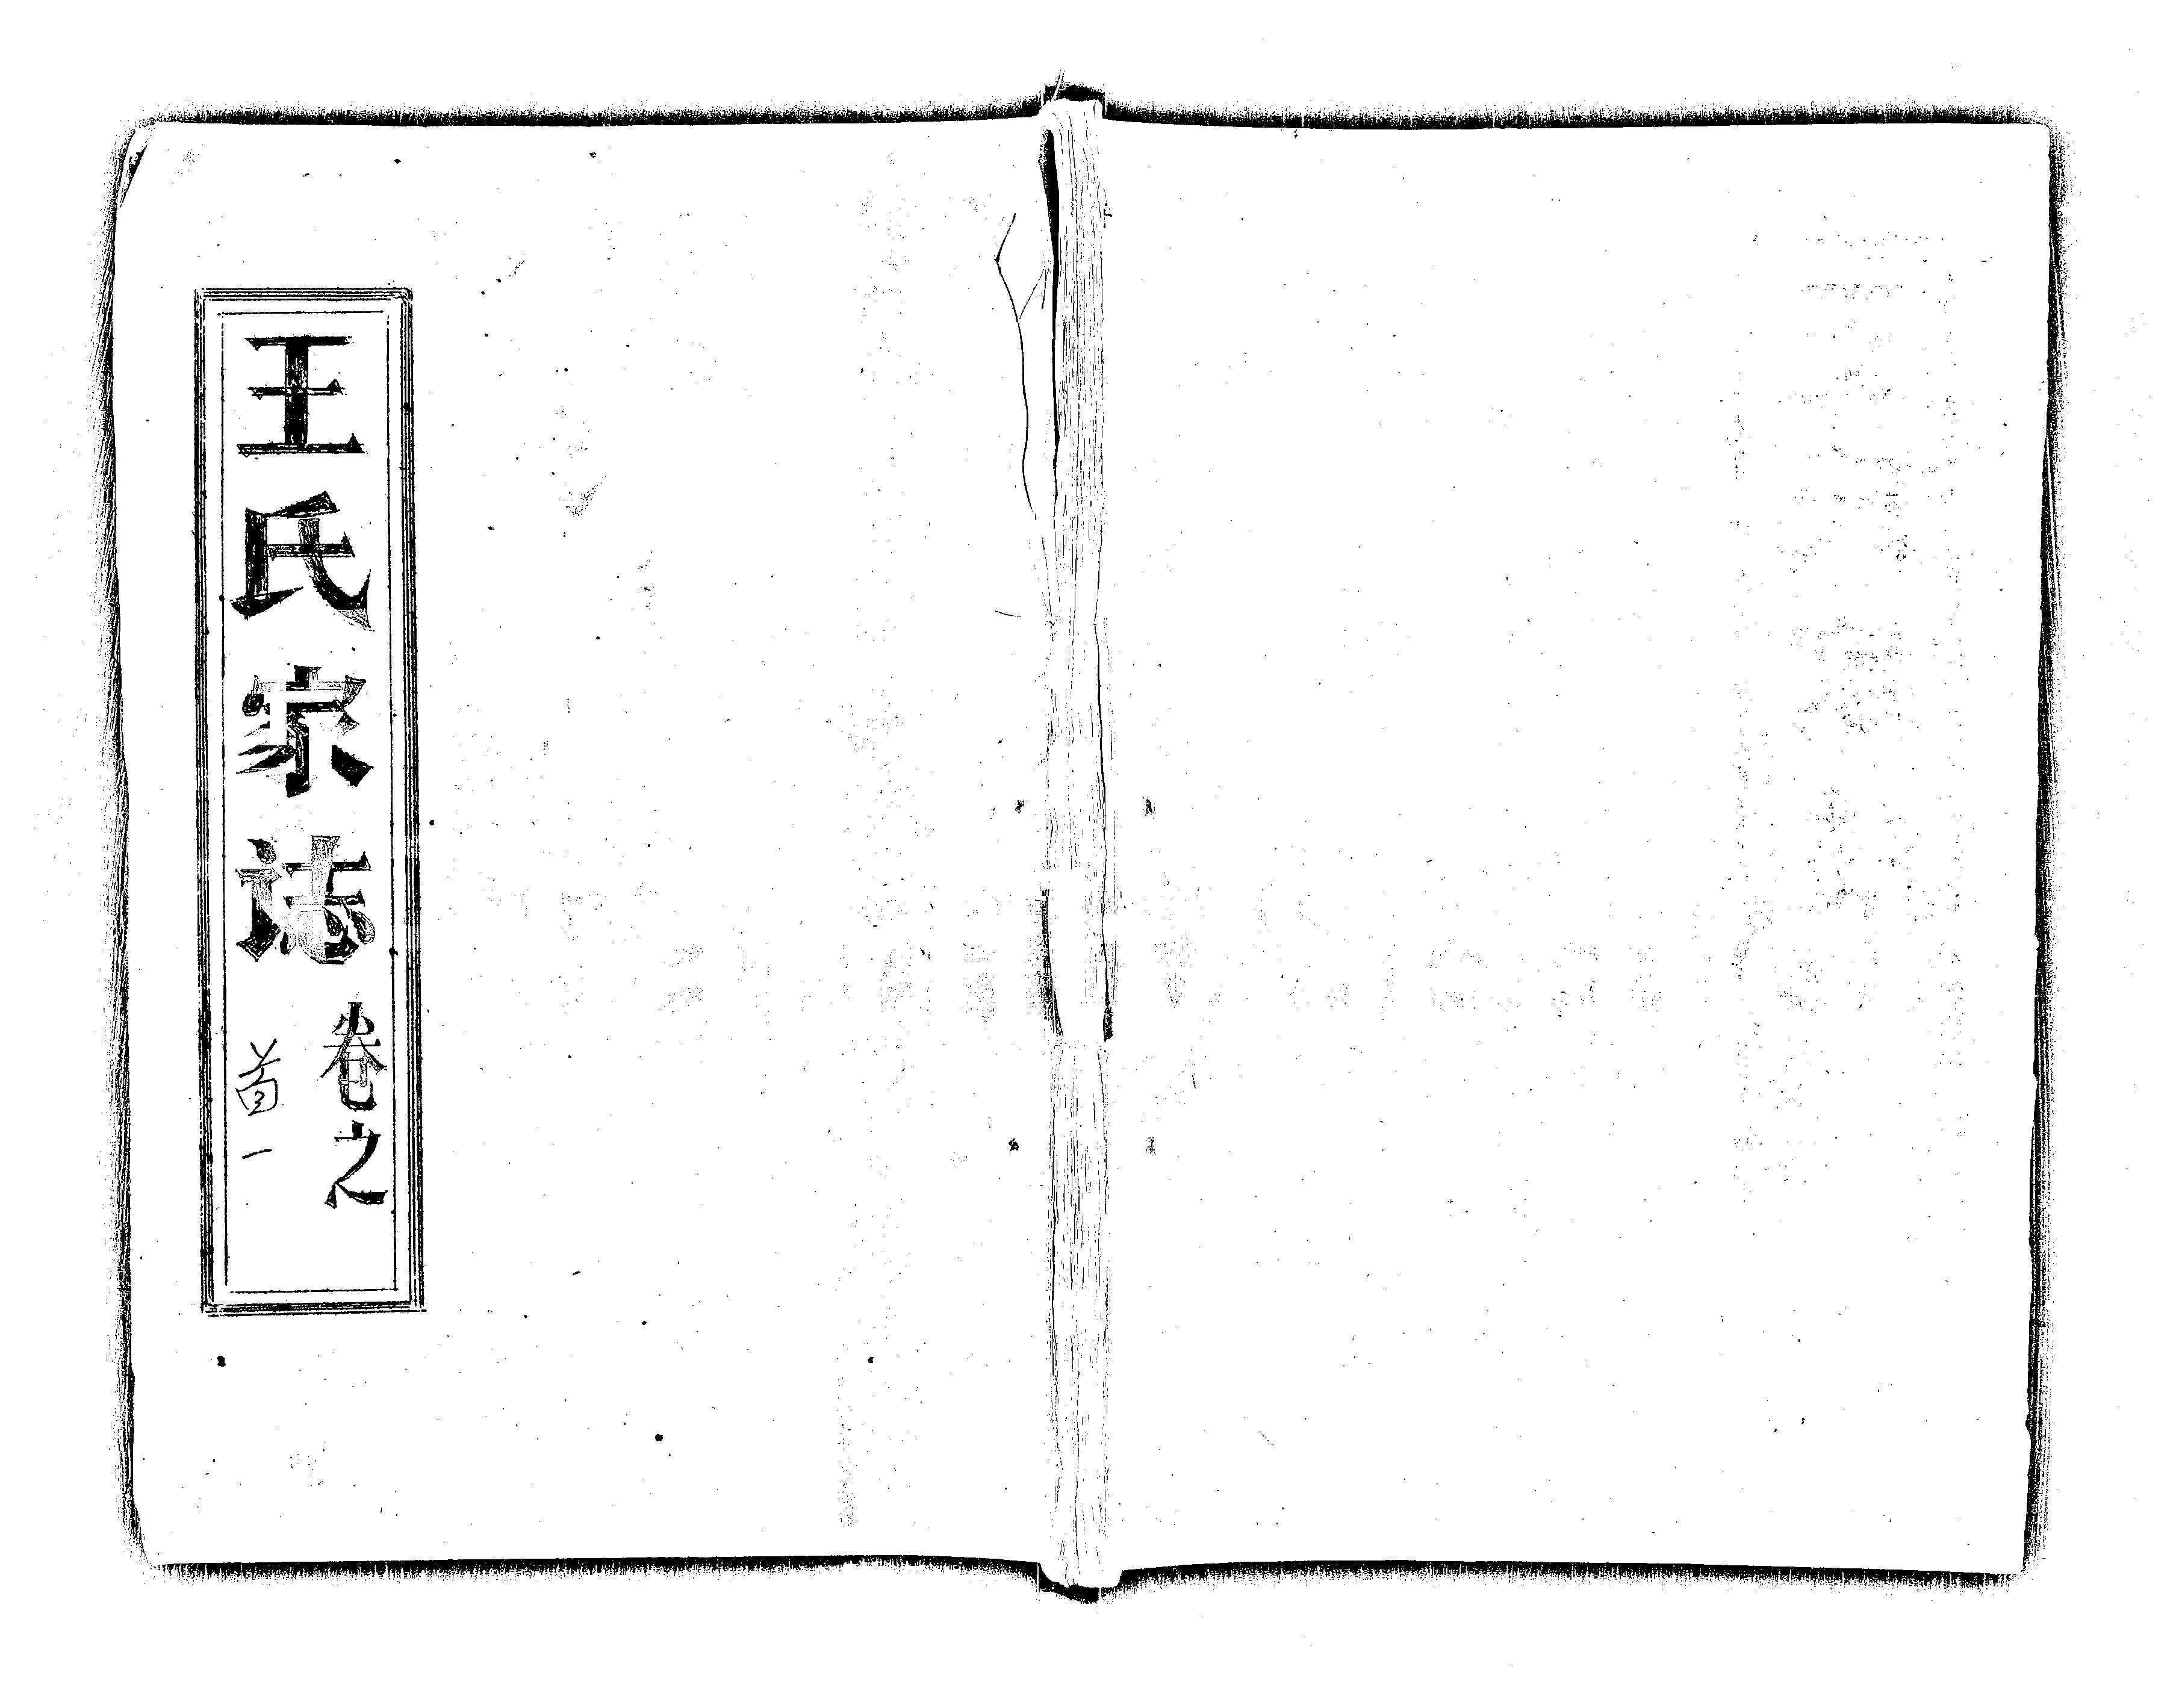 王氏宗誌
卷之
首一